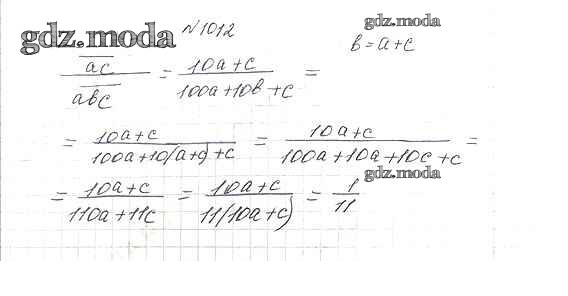 gdz.moda
N 1012
gdz.moda
b = a + c
ac / abc = 10a + c / 100a + 10b + c =
= 10a + c / 100a + 10(a + c) + c = 10a + c / 100a + 10a + 10c + c =
gdz.moda
= 10a + c / 110a + 11c = 10a + c / 11(10a + c) = 1 / 11